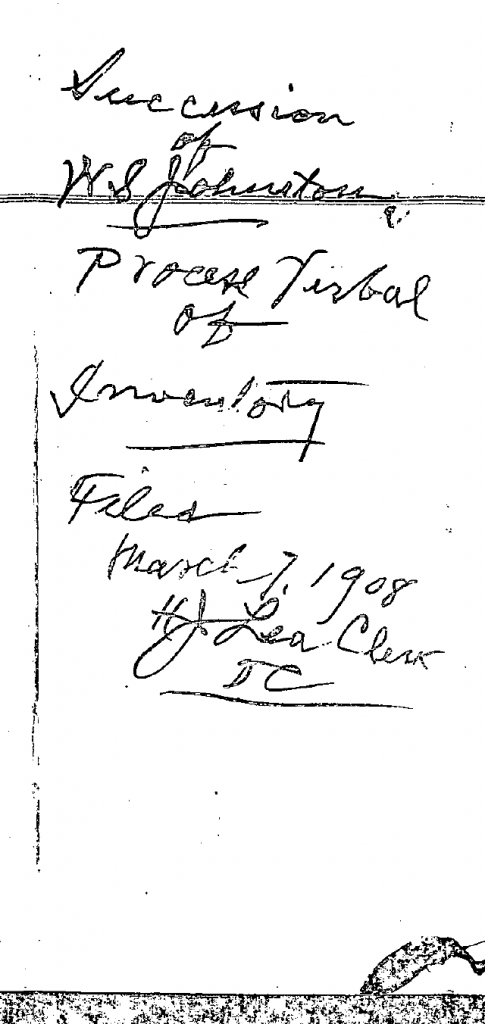 Succession
of
W. S. Johnston
Process Verbal
of
Inventory
Filed
March 7, 1908
H J Lea Clerk
DC